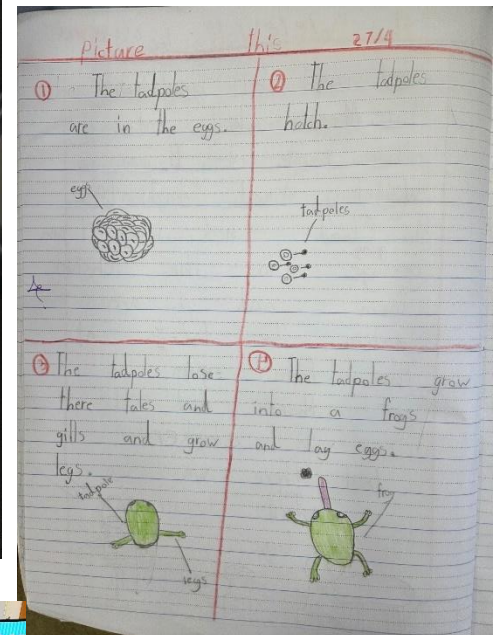 Picture this 27/4
① The tadpoles
are in the eggs.
eggs
② The tadpoles
hatch.
tadpoles
③ The tadpoles lose
there tales and
gills and grow
legs.
tadpole
legs
④ The tadpoles grow
into a frogs
and lay eggs.
frog